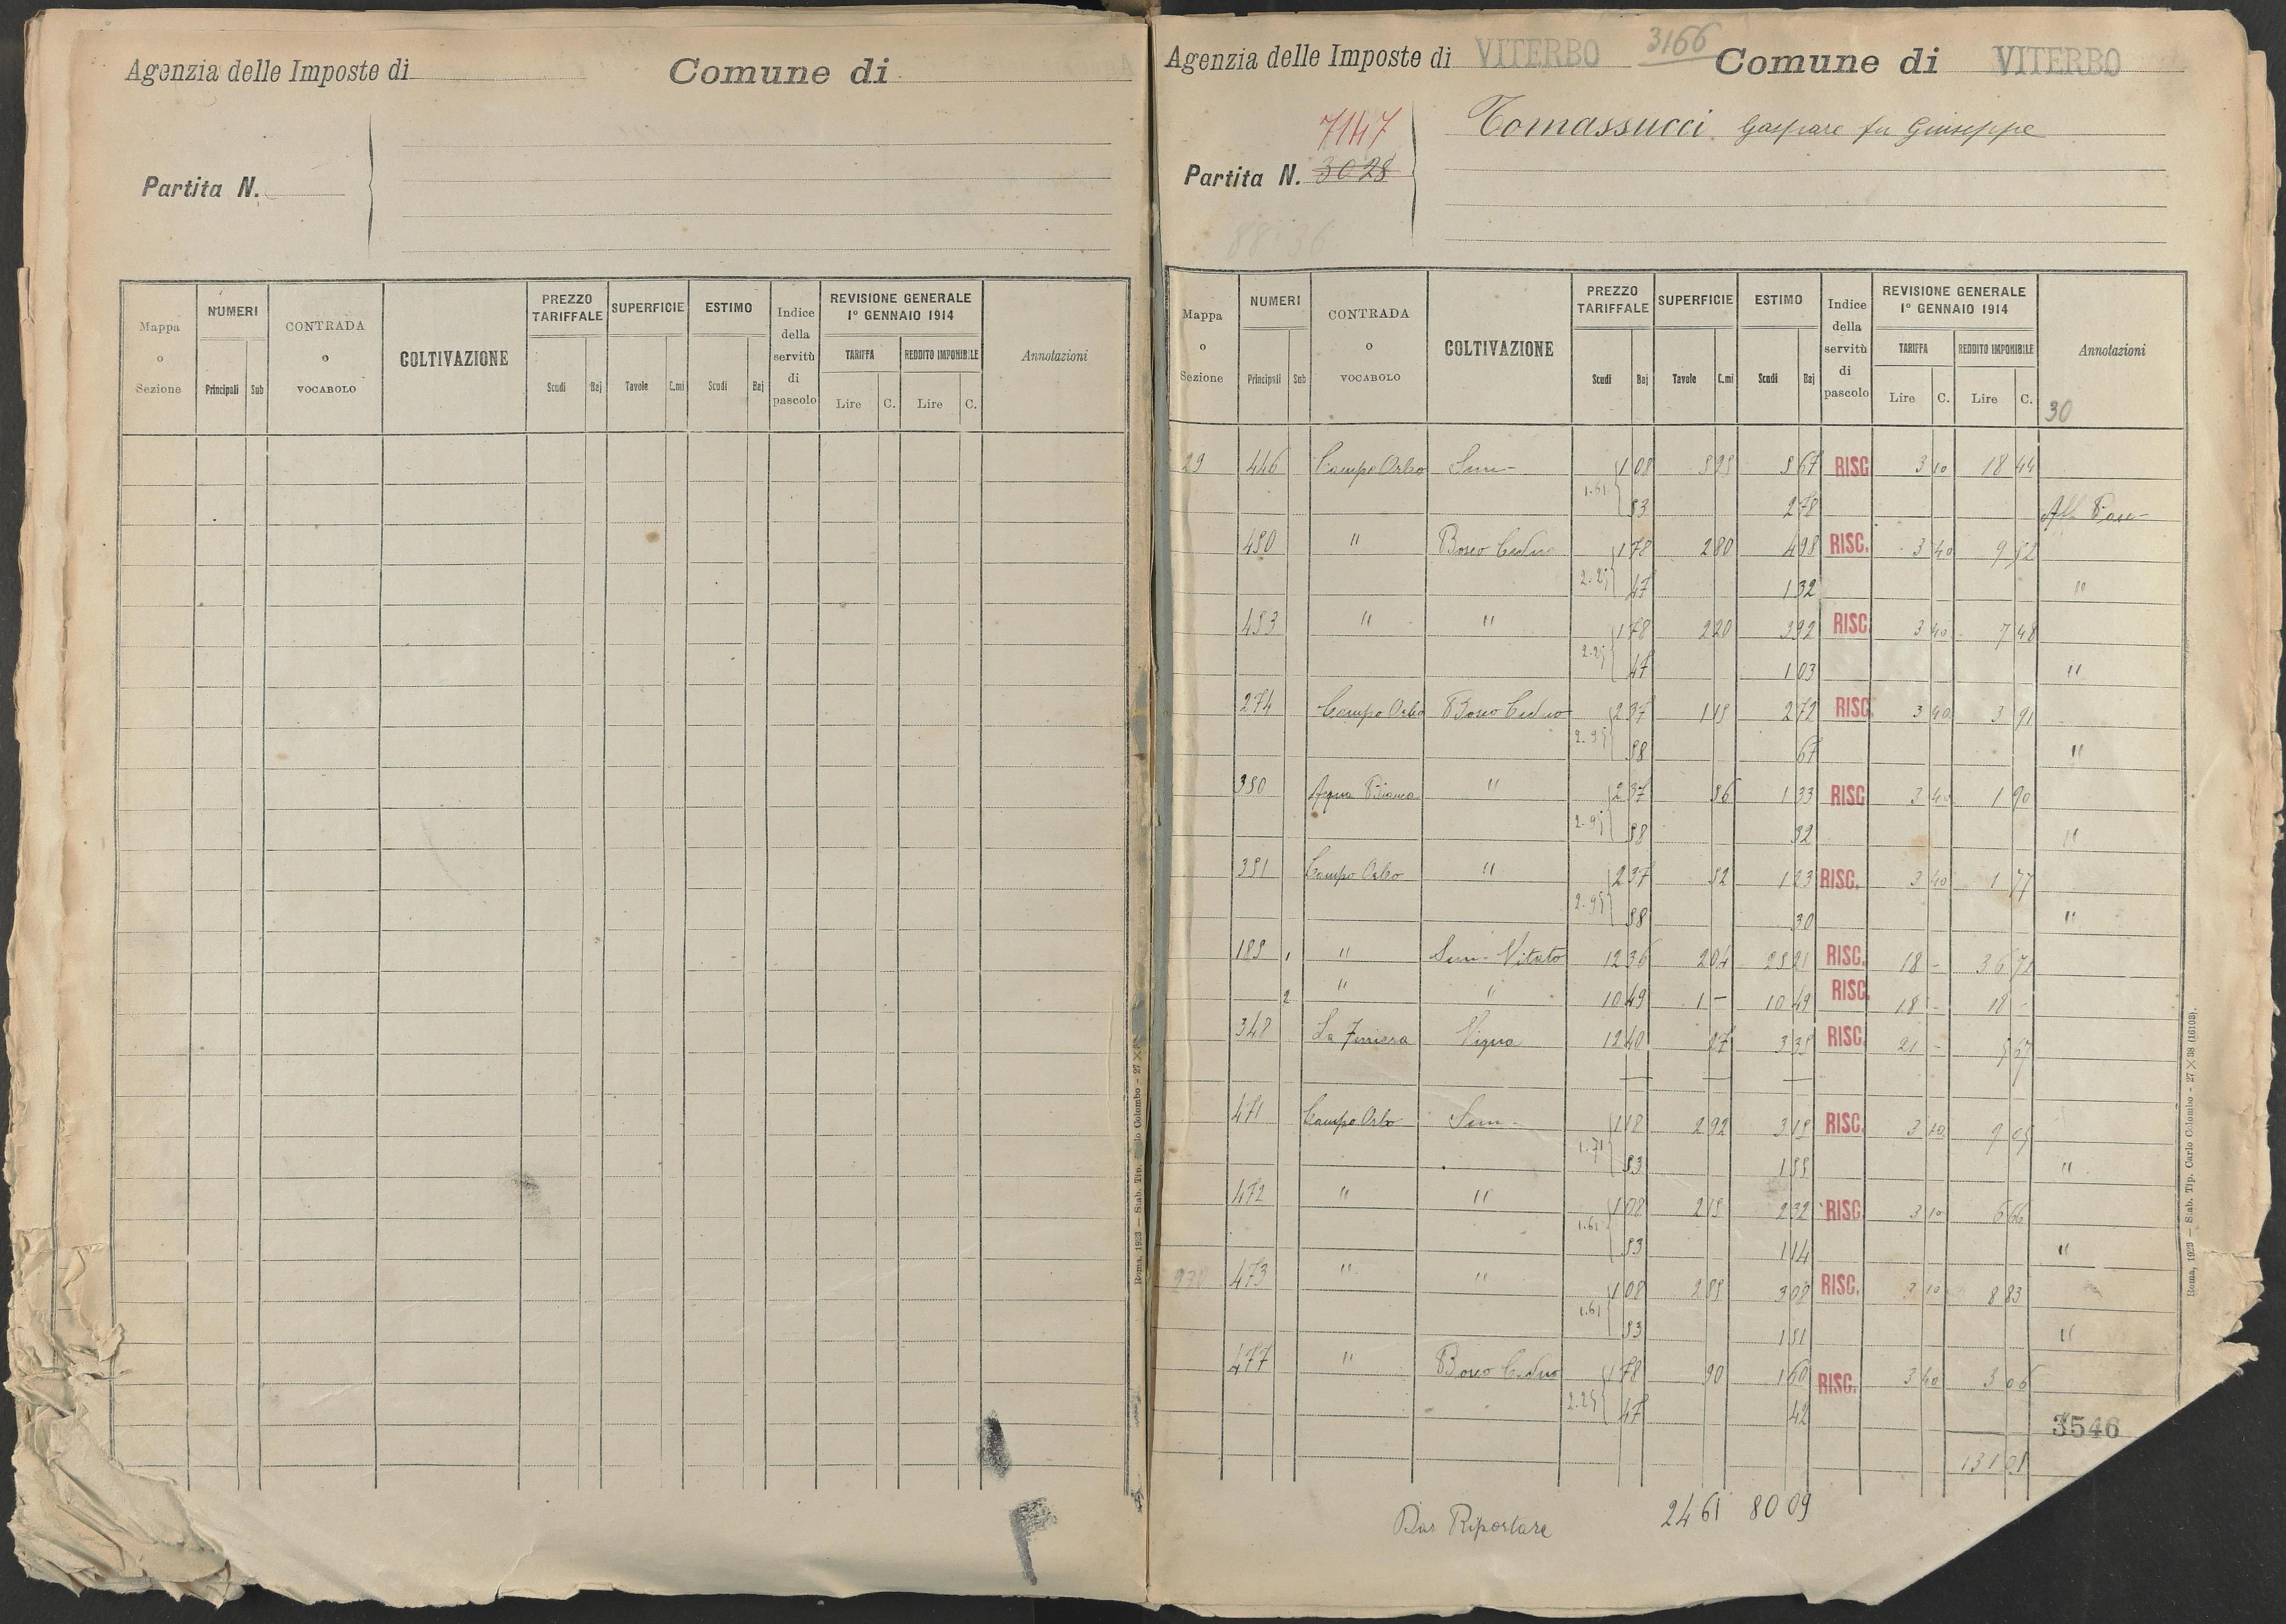 Agenzia delle Imposte di
Comune di
Partita N.
Mappa o Sezione
NUMERI
Principali Sub
CONTRADA o VOCABOLO
COLTIVAZIONE
PREZZO TARIFFALE
Scudi Baj
SUPERFICIE
Tavole C.mi
ESTIMO
Scudi Baj
Indice della servitù di pascolo
REVISIONE GENERALE 1° GENNAIO 1914
TARIFFA
Lire C.
REDDITO IMPONIBILE
Lire C.
Annotazioni
Agenzia delle Imposte di VITERBO 3166 Comune di VITERBO
7147
Partita N. 3028
Tomassucci Gaspare fu Giuseppe
88-36
Mappa o Sezione
NUMERI
Principali Sub
CONTRADA o VOCABOLO
COLTIVAZIONE
PREZZO TARIFFALE
Scudi Baj
SUPERFICIE
Tavole C.mi
ESTIMO
Scudi Baj
Indice della servitù di pascolo
REVISIONE GENERALE 1° GENNAIO 1914
TARIFFA
Lire C.
REDDITO IMPONIBILE
Lire C.
Annotazioni
30
29 446 Campo Orbo Sem- 1 08 5 95 RISC 3 10 18 44
1.61 53
450 " Bosco Ceduo 1 78 2 80 4 98 RISC. 3 40 9 52
2.25 47 1 32 "
453 " " 1 78 2 20 3 92 RISC 3 40 7 48
2.25 47 1 03 "
274 Campo Orbo Bosco Ceduo 2 37 1 15 2 72 RISC 3 40 3 91
2.95 58 67 "
350 Acqua Bianca " 2 37 56 1 33 RISC 3 40 1 90
2.95 58 32 "
351 Campo Orbo " 2 37 52 1 23 RISC. 3 40 1 77
2.95 58 30 "
185 1 " Sem- Vitato 12 36 2 04 25 21 RISC. 18 - 36 72
2 " " 10 49 1 - 10 49 RISC. 18 - 18 -
348 La Ferriera Vigna 12 40 27 3 35 RISC. 21 - 5 67
471 Campo Orbo Sem- 2 92 RISC. 3 10 9 05
1.71 53 1 55 "
472 " " 1 08 2 15 2 32 RISC 3 10 6 66
1.61 53 1 14 "
473 " " 1 08 2 85 3 08 RISC. 3 10 8 83
1.61 53 1 51 "
477 " Bosco Ceduo 1 78 90 1 60 RISC. 3 40 3 06
2.25 47 42 "
3546
131 01
Da Riportare 24 61 80 09
Roma, 1923 — Stab. Tip. Carlo Colombo - 27 × 38 (16103).